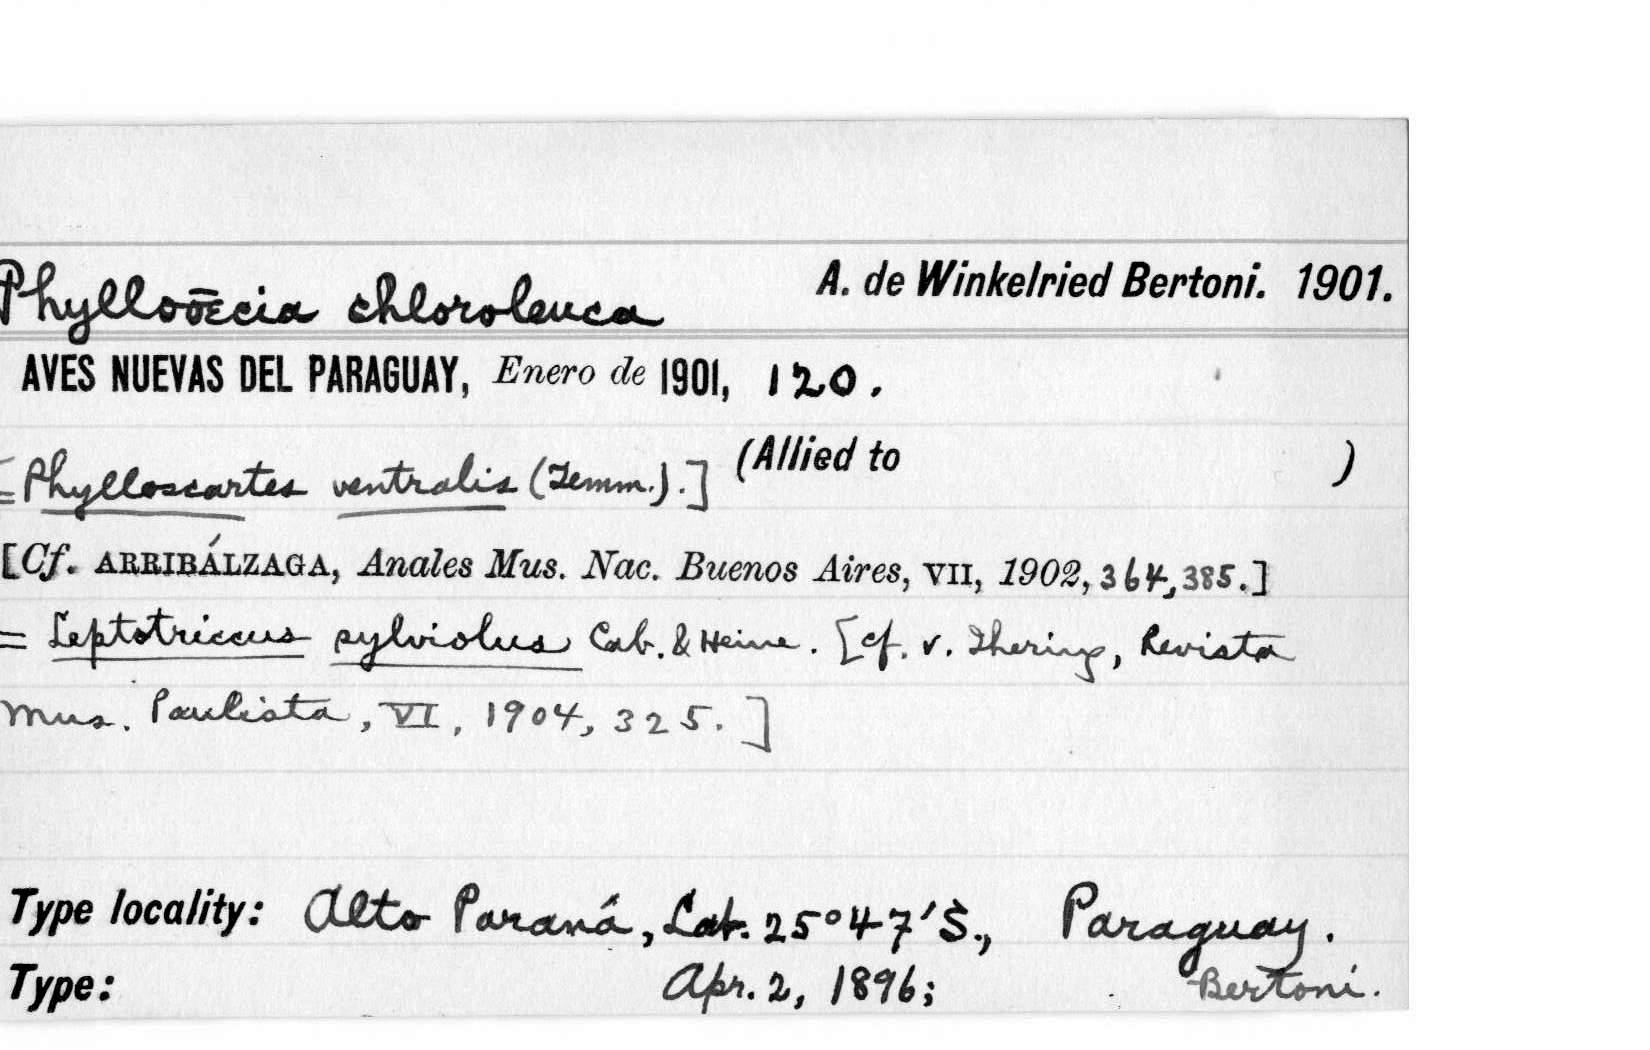 Phylloœcia chloroleuca A. de Winkelried Bertoni. 1901.
AVES NUEVAS DEL PARAGUAY, Enero de 1901, 120.
= Phylloscartes ventralis (Temm.).] (Allied to )
[Cf. ARRIBÁLZAGA, Anales Mus. Nac. Buenos Aires, VII, 1902, 364, 385.]
= Leptotriccus sylviolus Cab. & Heine. [cf. v. Ihering, Revista
Mus. Paulista, VI, 1904, 325.]
Type locality: Alto Paraná, Lat. 25°47'S., Paraguay.
Type: Apr. 2, 1896; Bertoni.